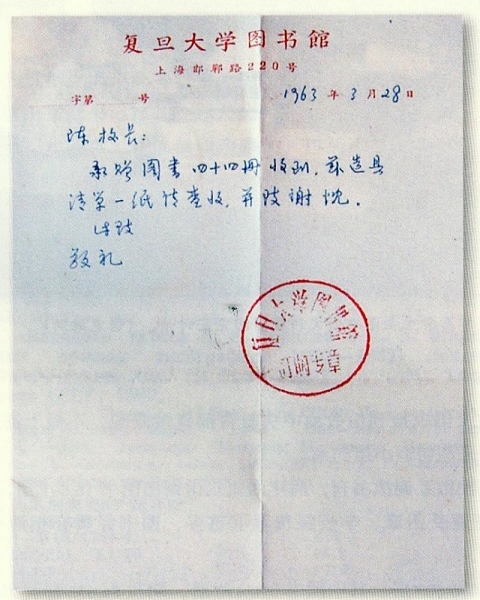 复旦大学图书館
上海邯郸路220号
字第 号
1963年3月28日
陈校长:
承赠图书四十四册收到,兹造具
清单一纸请查收,并致谢忱.
此致
敬礼
复旦大学图书馆
订购专章